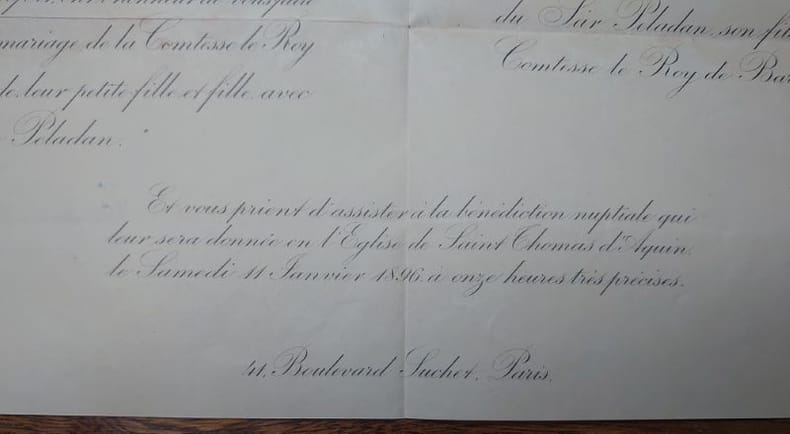 mariage de la Comtesse le Roy
de, leur petite fille et fille, avec
Péladan.
du Sâr Péladan, son fils
Comtesse le Roy de Bar
Et vous prient d'assister à la bénédiction nuptiale qui
leur sera donnée en l'Eglise de Saint Thomas d'Aquin,
le Samedi 11 Janvier 1896, à onze heures très précises.
41, Boulevard Suchet, Paris.